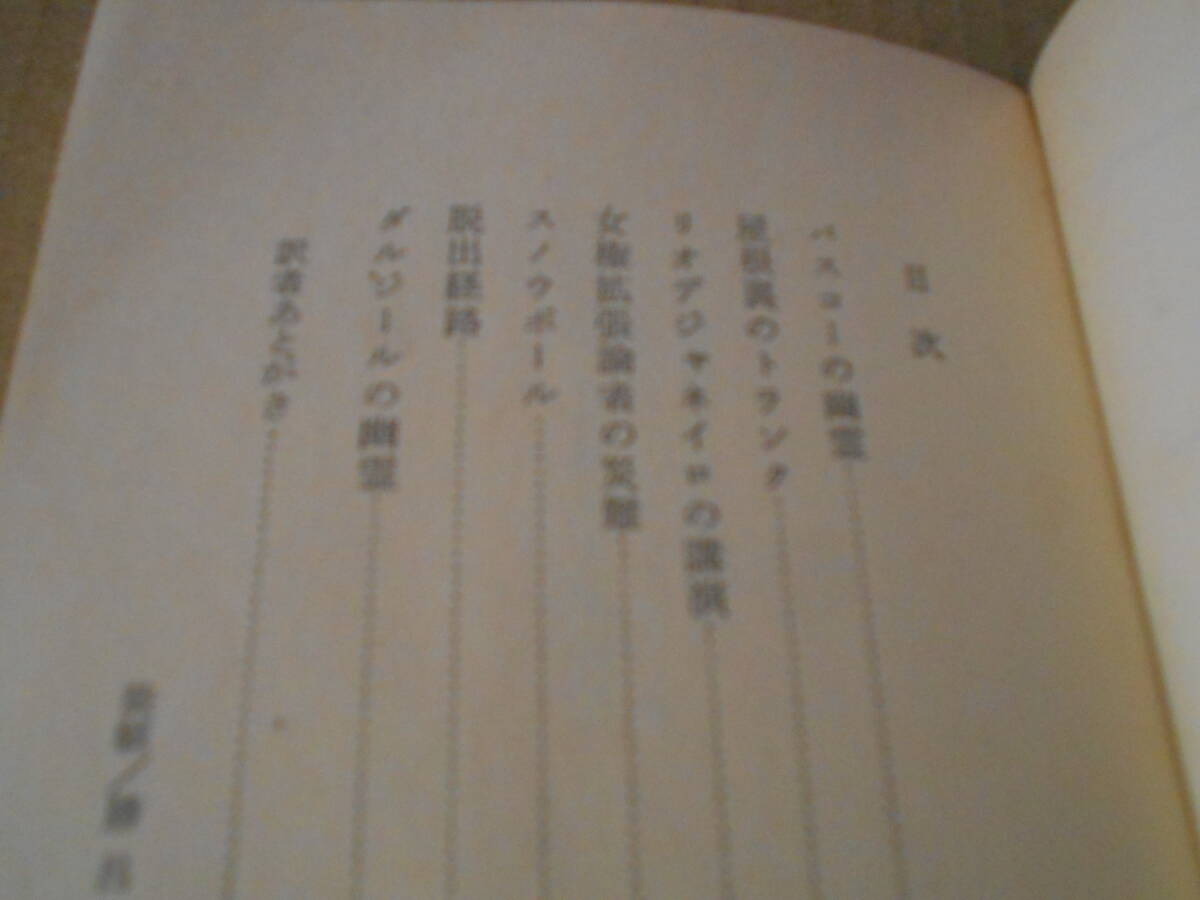 目次
パスコーの幽霊
屋根裏のトランク
リオデジャネイロの講演
女権拡張論者の災難
スノウボール
脱出経路
ダルジールの幽霊
訳者あとがき